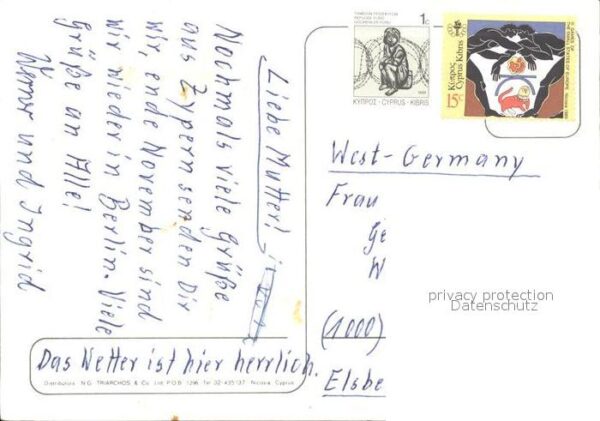 Liebe Mutter!
Nochmals viele Grüße
aus Zypern senden Dir
wir, ende November sind
wir wieder in Berlin. Viele
Grüße an Alle!
Werner und Ingrid
Das Wetter ist hier herrlich.
Distributors N.G. TRIARCHOS & Co. Ltd. P.O.B. 1296 Tel. 02-435137 Nicosia Cyprus
1c
ΚΥΠΡΟΣ - CYPRUS - KIBRIS
Κύπρος
Cyprus Kıbrıs
15c
West-Germany
Frau
Ge
W
(1000)
Elsbe
privacy protection
Datenschutz